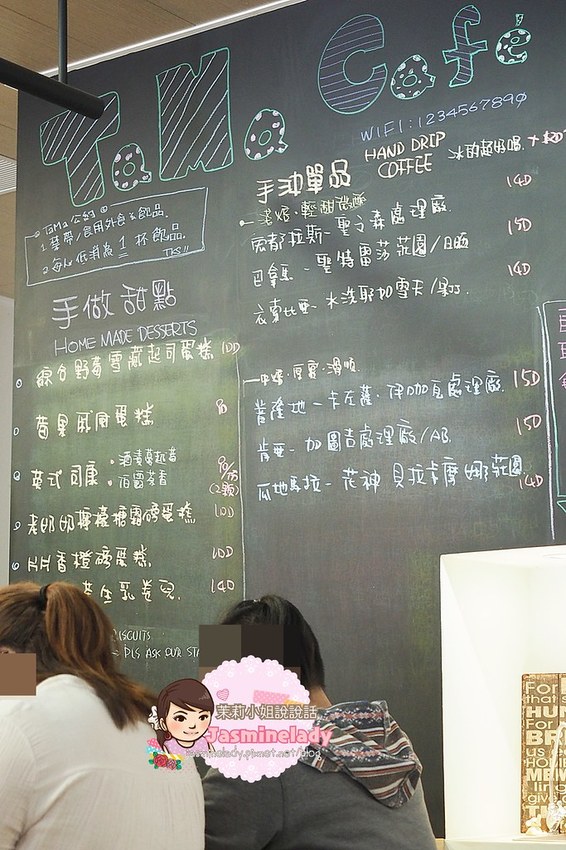 TaMa Café
WIFI:1234567890
TaMa 公約
1. 禁帶/食用外食&飲品.
2. 每人低消為1杯飲品.
TKS!!
手做甜點
HOME MADE DESSERTS
綜合野莓雪藏起司蛋糕 100
蘋果戚風蛋糕
英式司康
伯爵茶香
(2顆)
老奶奶檸檬糖霜磅蛋糕 100
香橙磅蛋糕. 100
花生乳卷兒. 140
BISCUITS
PLS ASK OUR STA
手沖單品
HAND DRIP
COFFEE
冰的超好喝.
淺焙·輕甜微酸
宏都拉斯—聖文森處理廠. 140
巴拿馬—聖特雷莎莊園/日曬 150
衣索比亞—水洗耶加雪夫/果丁. 140
中焙·厚實·滑順
普隆地—卡左薩·伊加瓦處理廠. 150
肯亞—加圖吉處理廠/AB. 150
瓜地馬拉—花神 貝拉卡摩娜莊園 140
茉莉小姐說說話
Jasminelady
jasminelady.pixnet.net/blog
For
that
HUN
For
BR
us
HOU
MEM
lin
give